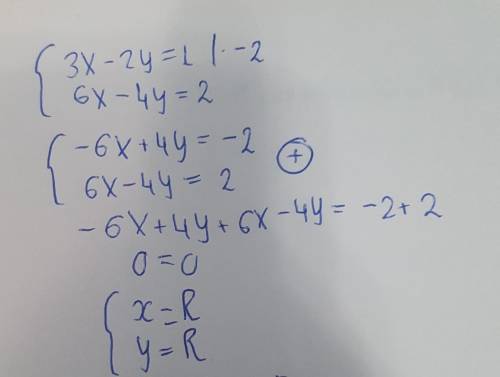 3x-2y=1 |·-2
6x-4y=2
-6x+4y=-2
6x-4y=2
+
-6x+4y+6x-4y=-2+2
0=0
x=R
y=R